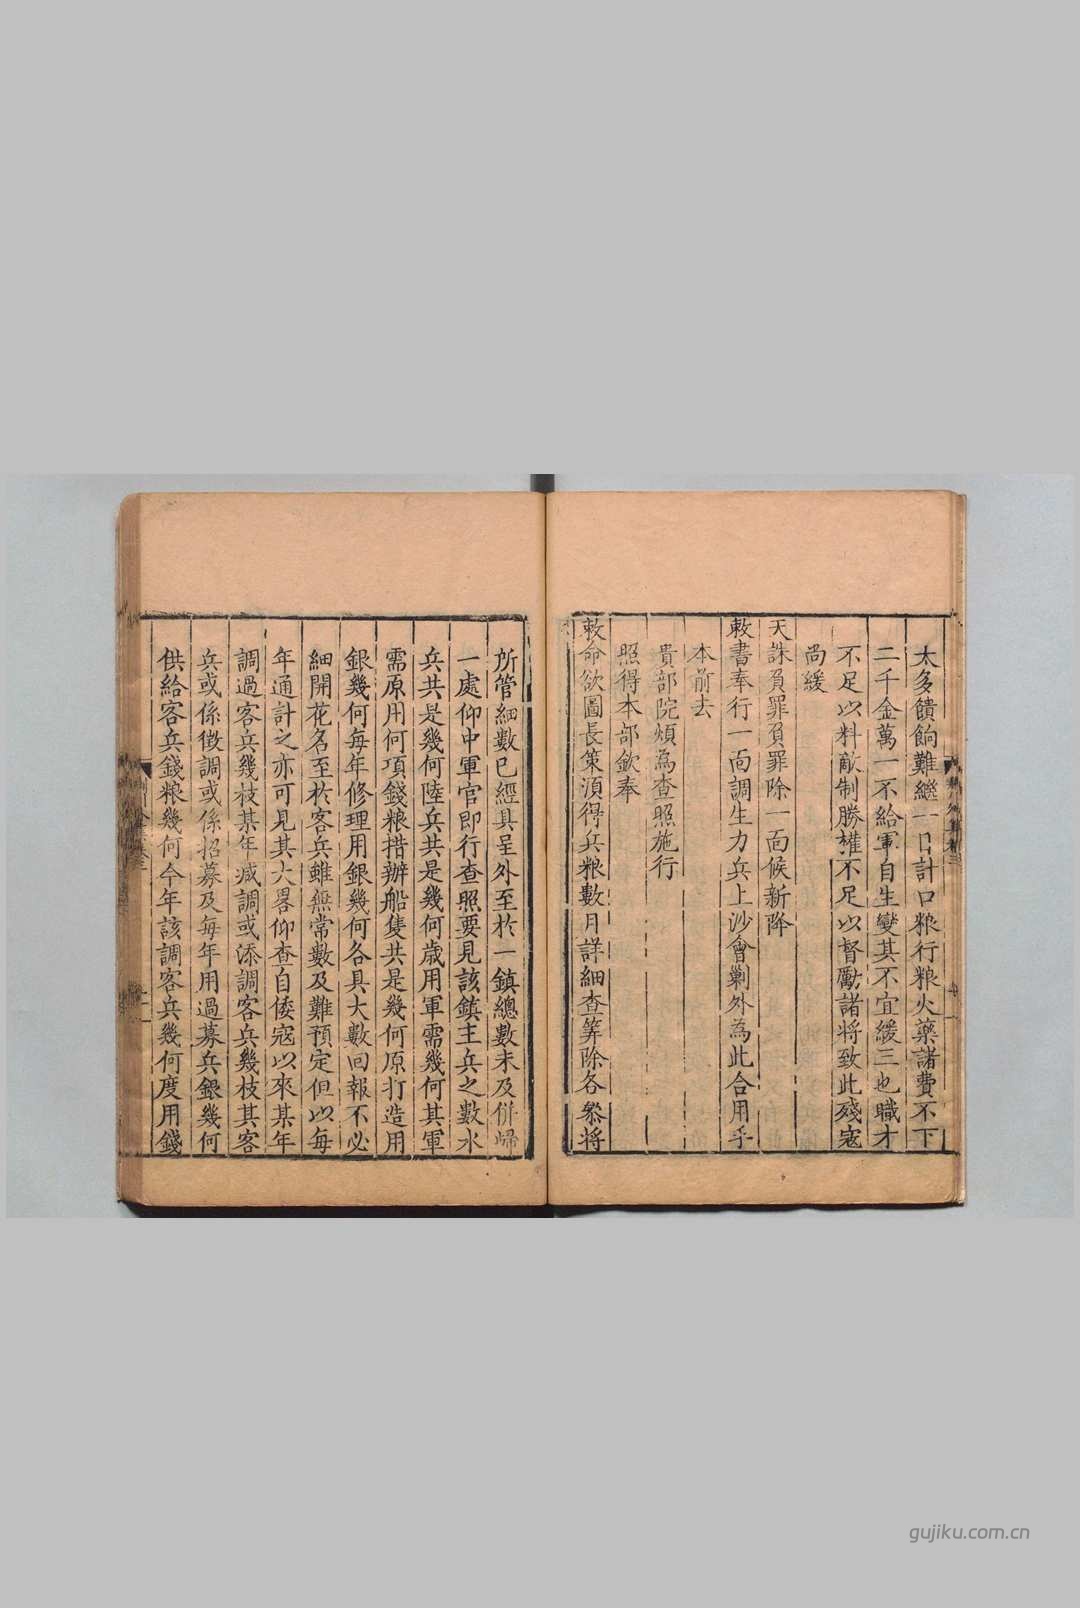 太多饋餉難繼一日計口粮行粮火藥諸費不下
二千金萬一不給軍自生變其不宜緩三也職才
不足以料敵制勝權不足以督勵諸将致此殘寇
尚緩
天誅負罪負罪除一面候新降
敕書奉行一面調生力兵上沙會剿外為此合用乎
本前去
貴部院煩為查照施行
照得本部欽奉
敕命欲圖長策湏得兵粮數月詳細查筭除各叅将
所管細數已經具呈外至於一鎮總數未及併歸
一處仰中軍官即行查照要見該鎮主兵之數水
兵共是幾何陸兵共是幾何歲用軍需幾何其軍
需原用何項錢粮措辦船隻共是幾何原打造用
銀幾何每年修理用銀幾何各具大數回報不必
細開花名至於客兵雖無常數及難預定但以每
年通計之亦可見其大畧仰查自倭寇以來某年
調過客兵幾枝某年減調或添調客兵幾枝其客
兵或係徵調或係招募及每年用過募兵銀幾何
供給客兵錢粮幾何今年該調客兵幾何度用錢
gujiku.com.cn